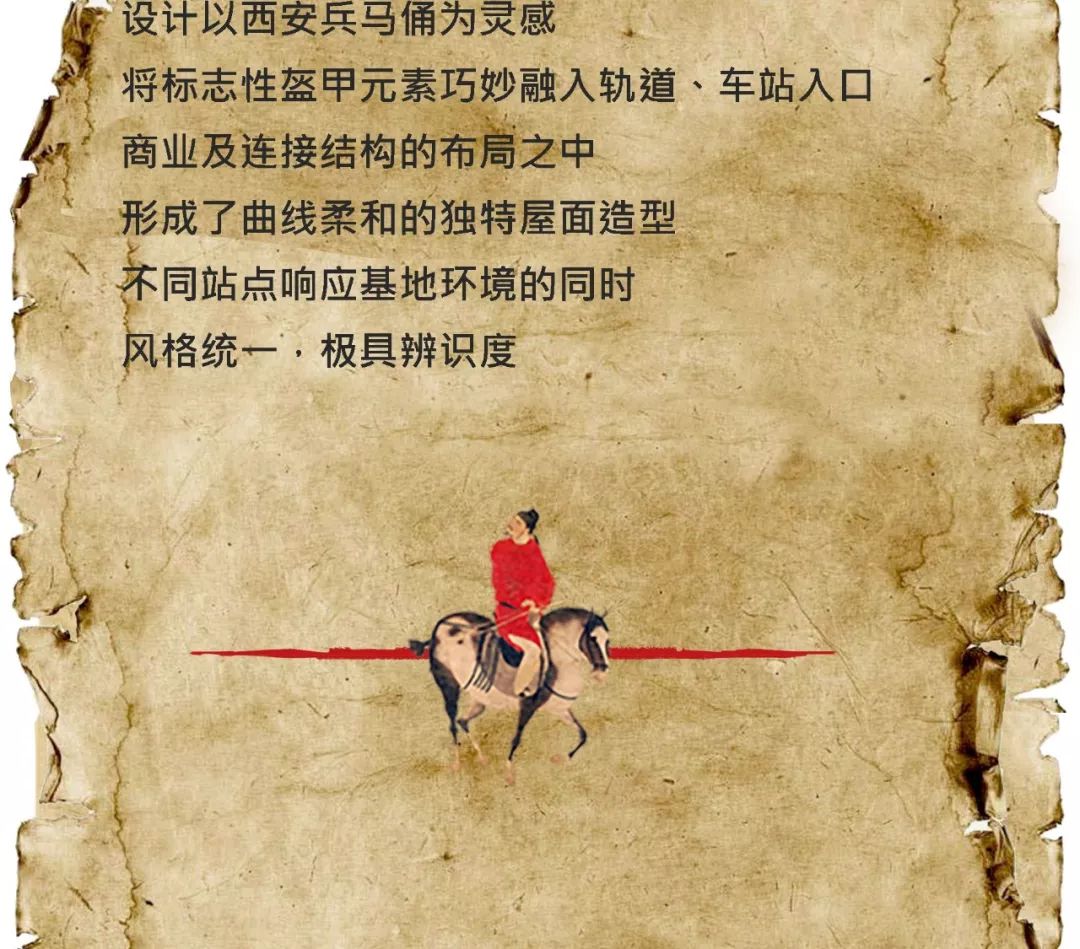 设计以西安兵马俑为灵感
将标志性盔甲元素巧妙融入轨道、车站入口
商业及连接结构的布局之中
形成了曲线柔和的独特屋面造型
不同站点响应基地环境的同时
风格统一，极具辨识度